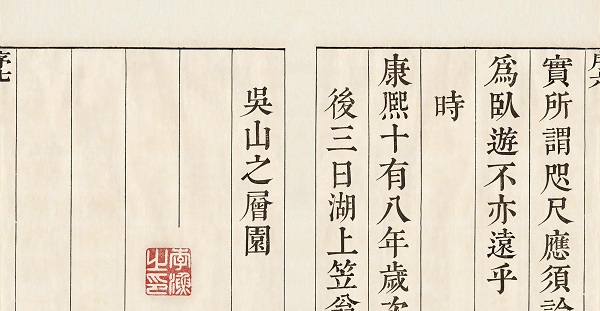 實所謂咫尺應須論
爲臥遊不亦遠乎
時
康熙十有八年歲次
後三日湖上笠翁
吳山之層園
李漁之印
序七